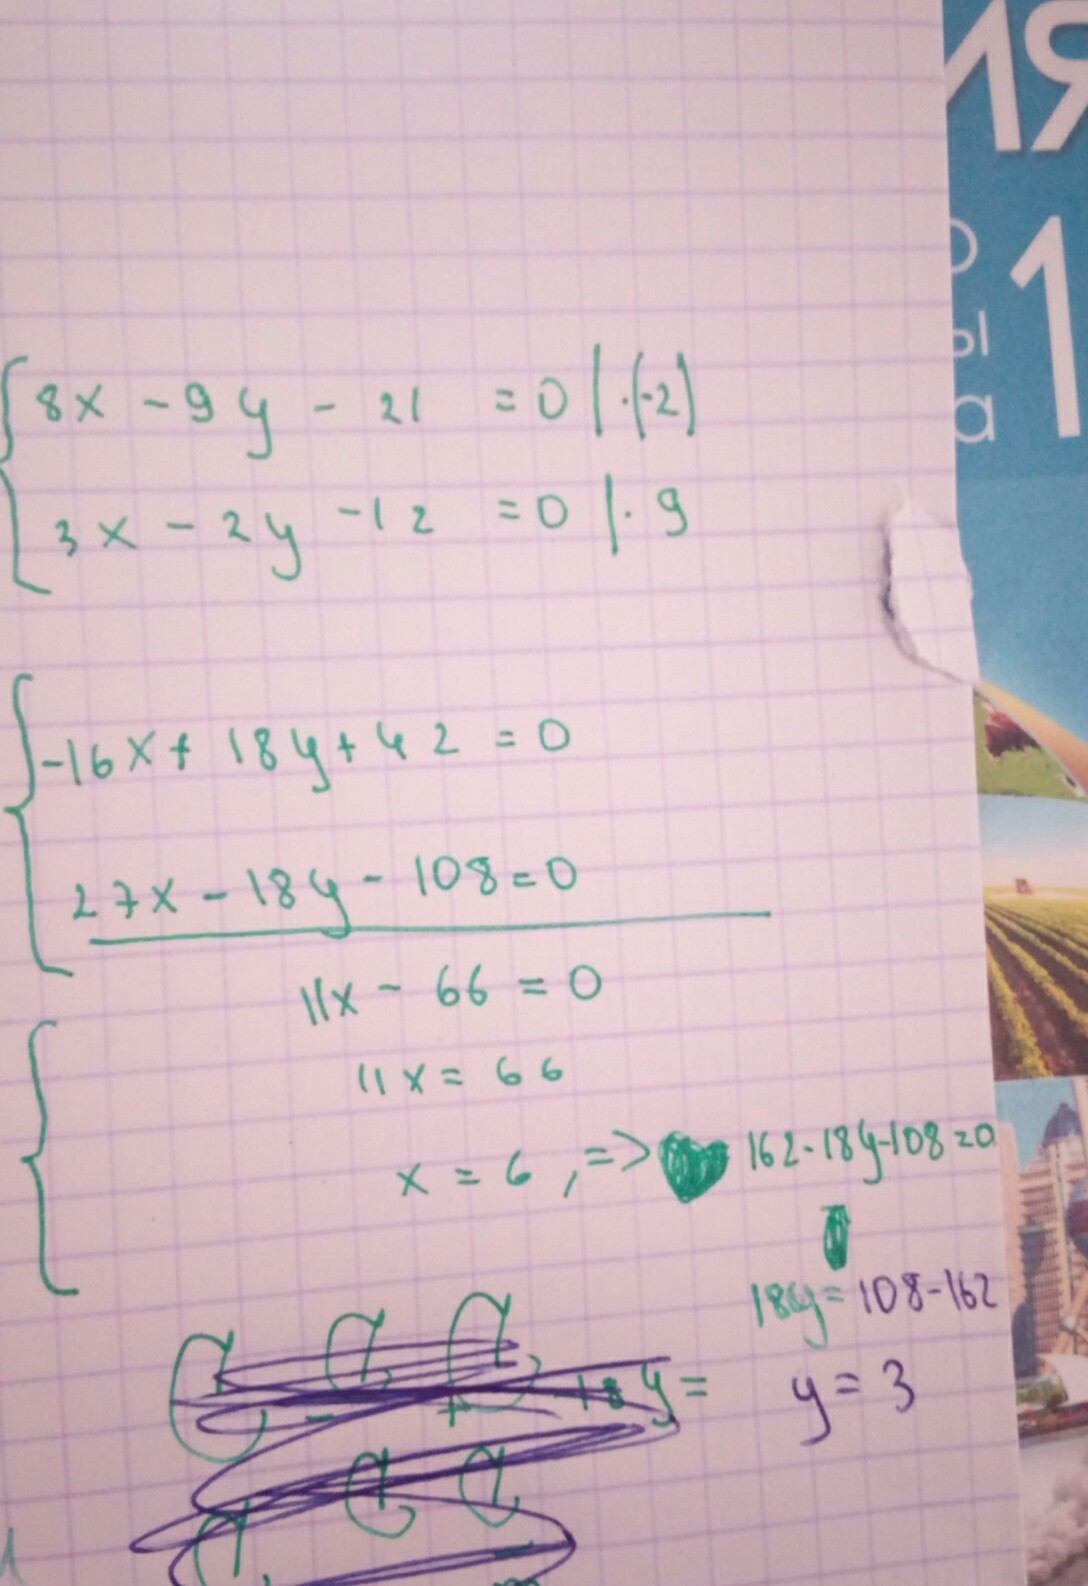 ИЯ
1
ы
а
8x - 9y - 21 = 0 | ·(-2)
3x - 2y - 12 = 0 | · 9
-16x + 18y + 42 = 0
27x - 18y - 108 = 0
11x - 66 = 0
11x = 66
x = 6, => 162 - 18y - 108 = 0
18y = 108 - 162
18y = y = 3